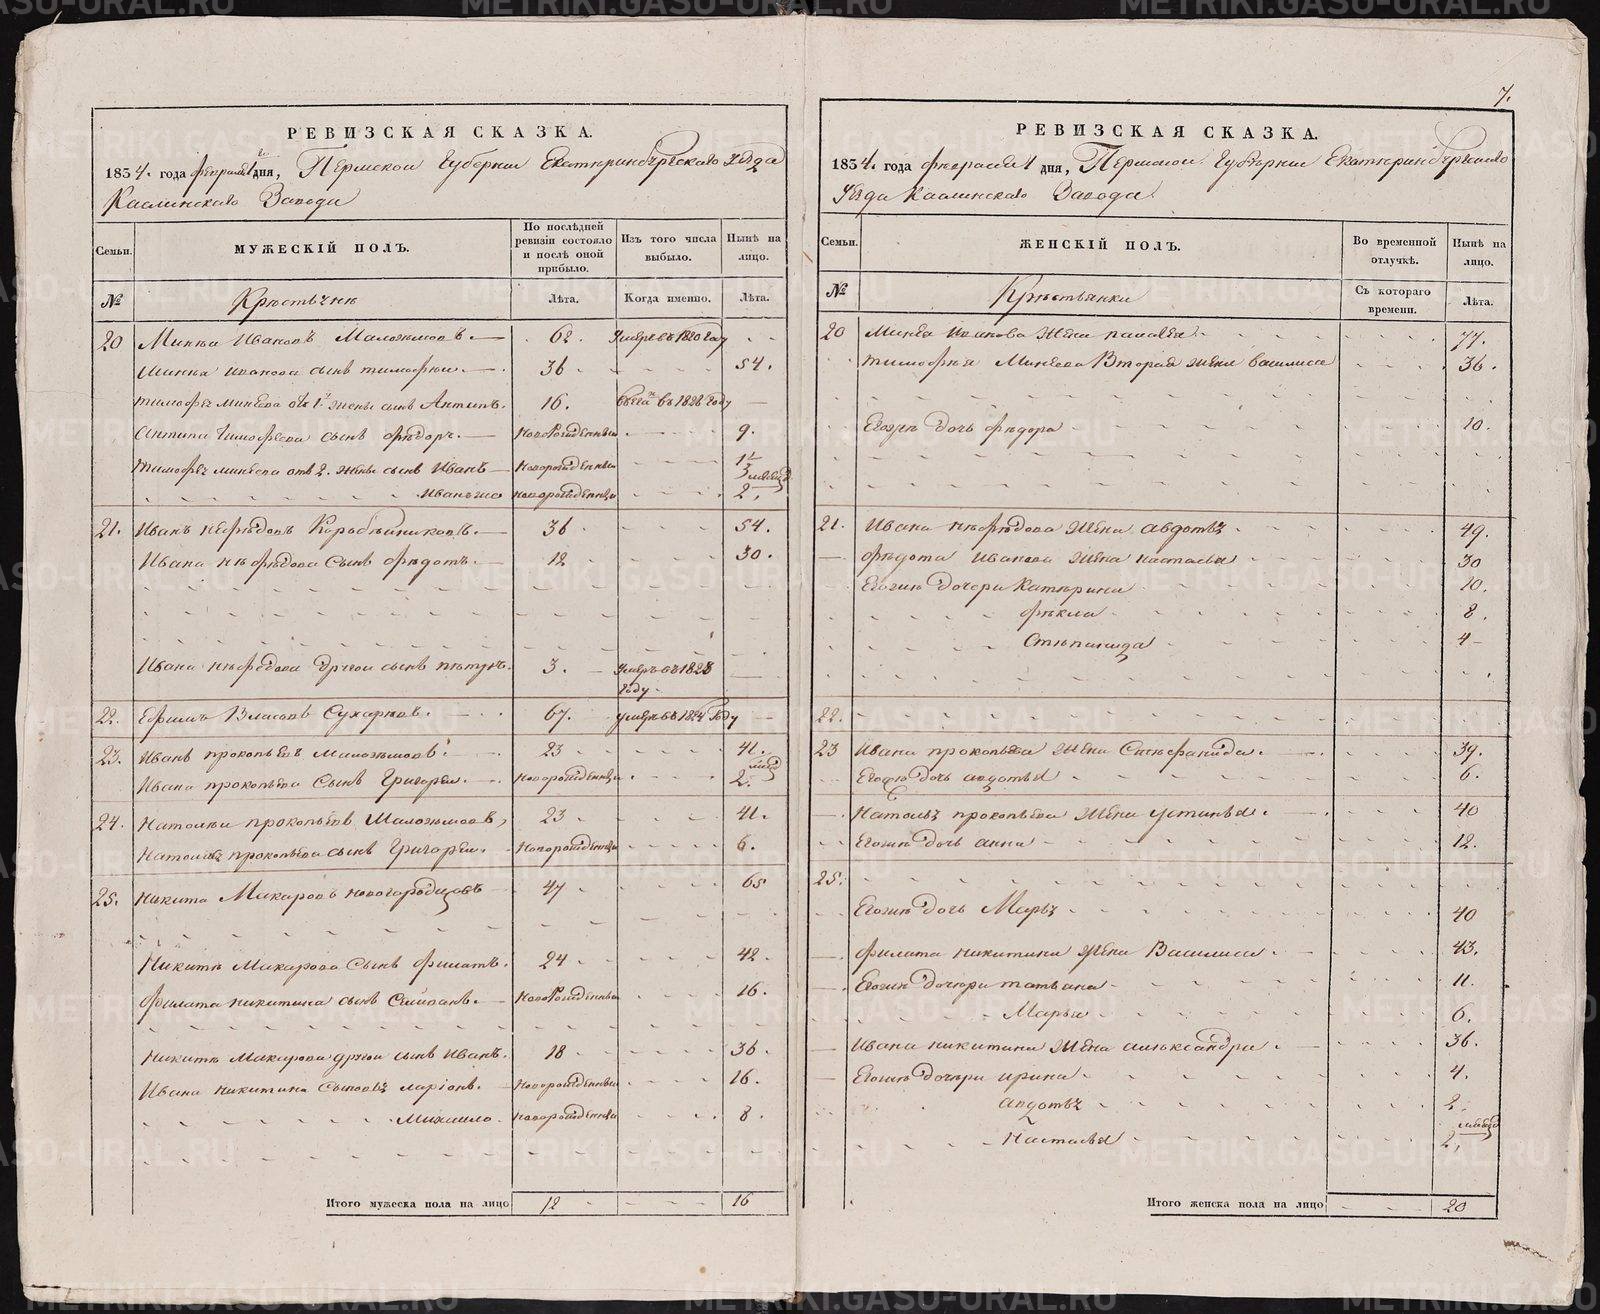 7.
РЕВИЗСКАЯ СКАЗКА.
1834. года февраля 1 дня, Пермской Губернии Екатеринбургскаго уѣзда
Каслинскаго Завода
Семьи. МУЖЕСКІЙ ПОЛЪ. По послѣдней ревизіи состояло и послѣ оной прибыло. Изъ того числа выбыло. Нынѣ на лицо.
№ Крестьяне Лѣта. Когда именно. Лѣта.
20 Минѣй Ивановъ 62. умеръ въ 1820 году
Минѣя Иванова сынъ Тимофей 36 54.
Тимофея Минѣева отъ 1й жены сынъ Антипъ. 16. в 1828 году
Антипа Тимофеева сынъ Федоръ. новорожденный 9.
Тимофея Минѣева отъ 2. жены сынъ Иванъ новорожденный 1 1/3
Иванъ же новорожденный 2. месяца
21. Иванъ Нефедовъ Коробейниковъ. 36 54.
Ивана Нефедова сынъ Федотъ. 12 30.
Ивана Нефедова другой сынъ Петръ. 3. умеръ въ 1828 году.
22. Ефимъ Власовъ Сухаревъ. 67. умеръ въ 1824 году
23. Иванъ Прокопьевъ 23 41.
Ивана Прокопьева сынъ Григорей. новорожденный 2. меся
24. Прокопьевъ 23 41.
Прокопьева сынъ Григорей. новорожденный 6.
25. Никита Макаровъ Новогородцовъ 47 65
Никиты Макарова сынъ Филатъ. 24 42
Филата Никитина сынъ новорожденный 16.
Никиты Макарова другой сынъ Иванъ. 18 36.
Ивана Никитина сыновья Ларіонъ. новорожденный 16.
Михаило. новорожденный 8.
Итого мужеска пола на лицо 12 16
РЕВИЗСКАЯ СКАЗКА.
1834. года февраля 1 дня, Пермской Губернии Екатеринбургскаго
Уѣзда Каслинскаго Завода.
Семьи. ЖЕНСКІЙ ПОЛЪ. Во временной отлучкѣ. Нынѣ на лицо.
№ Крестьянки Съ котораго времени. Лѣта.
20 Минѣа Иванова жена 77.
Тимофея Минѣева вторая жена Василиса 36.
Егожъ дочь Федора 10.
21. Ивана Нефедова жена Авдотья 49.
Федота Иванова жена Настасья 30
Егожъ дочери Катерина 10.
Фекла 8.
Степанида 4
22.
23 Ивана Прокопьева жена Степанида. 39.
Егожъ дочь Авдотья 6.
Прокопьева жена Устинья. 40
Егожъ дочь Анна 12.
25.
Егожъ дочь Марья 40
Филата Никитина жена Василиса 43.
Егожъ дочери Татьяна 11.
Марья 6.
Ивана Никитина жена Александра. 36.
Егожъ дочери Ирина 4.
Авдотья 2.
Настасья 2. месяца
Итого женска пола на лицо 20
METRIKI.GASO-URAL.RU